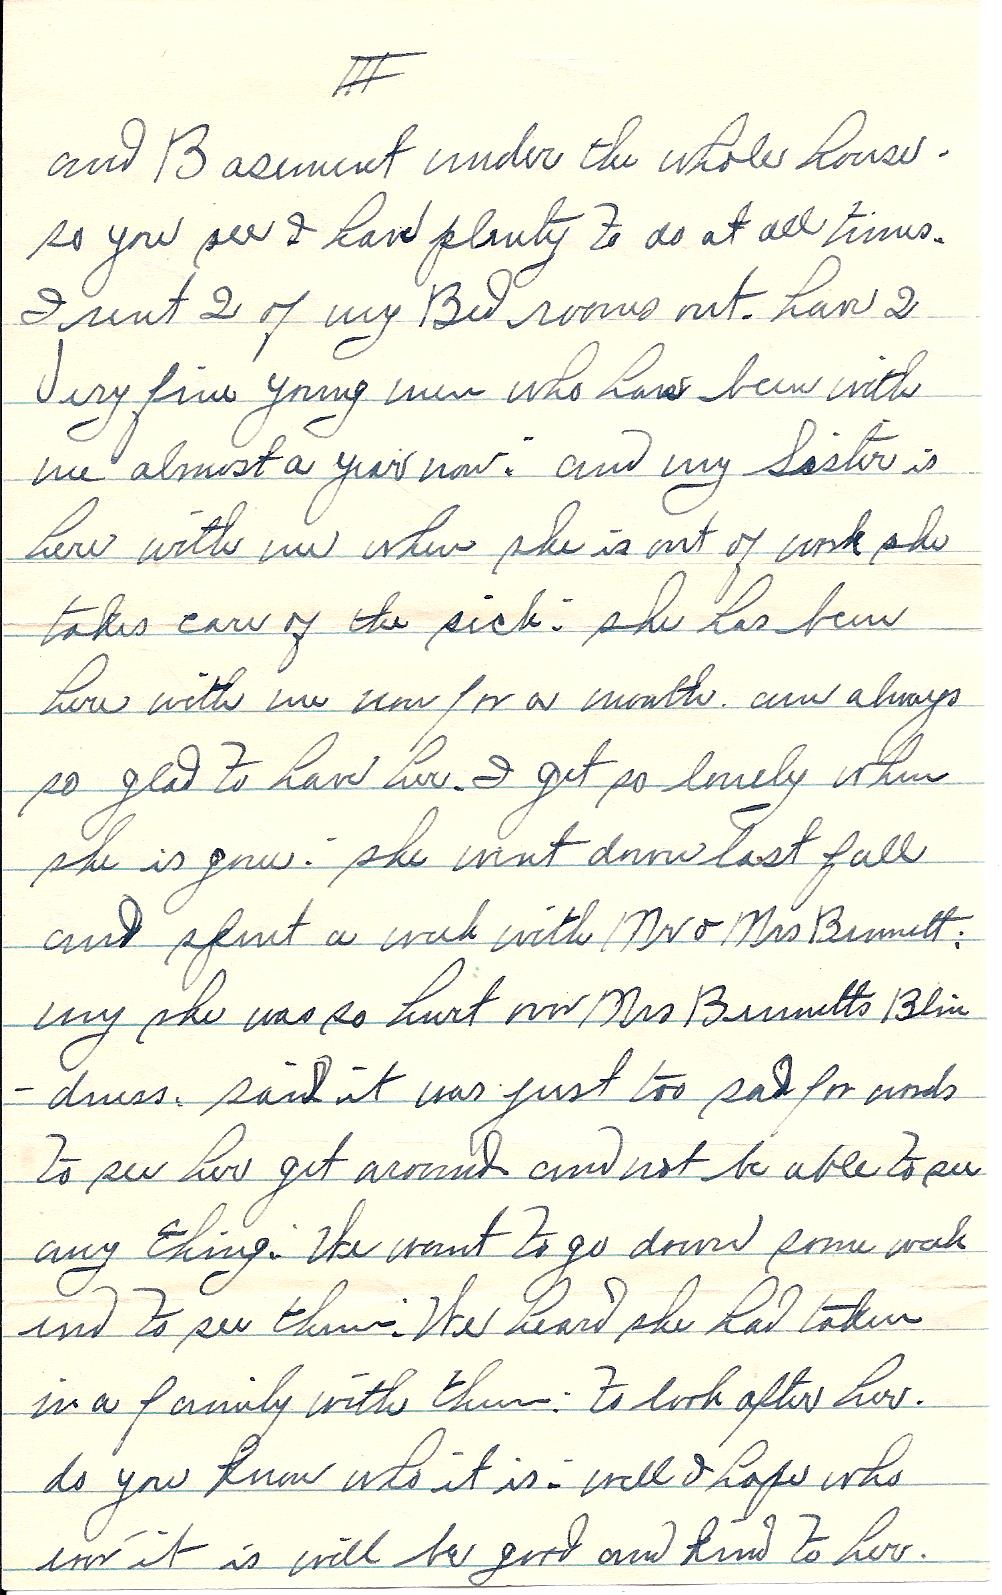 III
and Basement under the whole house.
so you see I have plenty to do at all times.
I rent 2 of my Bed rooms out. have 2
Very fine young men who have been with
me almost a year now. and my Sister is
here with me when she is out of work she
takes care of the sick. she has been
here with me now for a month. am always
so glad to have her. I get so lonely when
she is gone. she went down last fall
and spent a week with Mr & Mrs Bennett.
my she was so hurt over Mrs Bennetts Blin
-dness. said it was just too sad for words
to see her get around and not be able to see
any thing. We want to go down some week
end to see them. We heard she had taken
in a family with them. to look after her.
do you know who it is. well I hope who
ever it is will be good and kind to her.